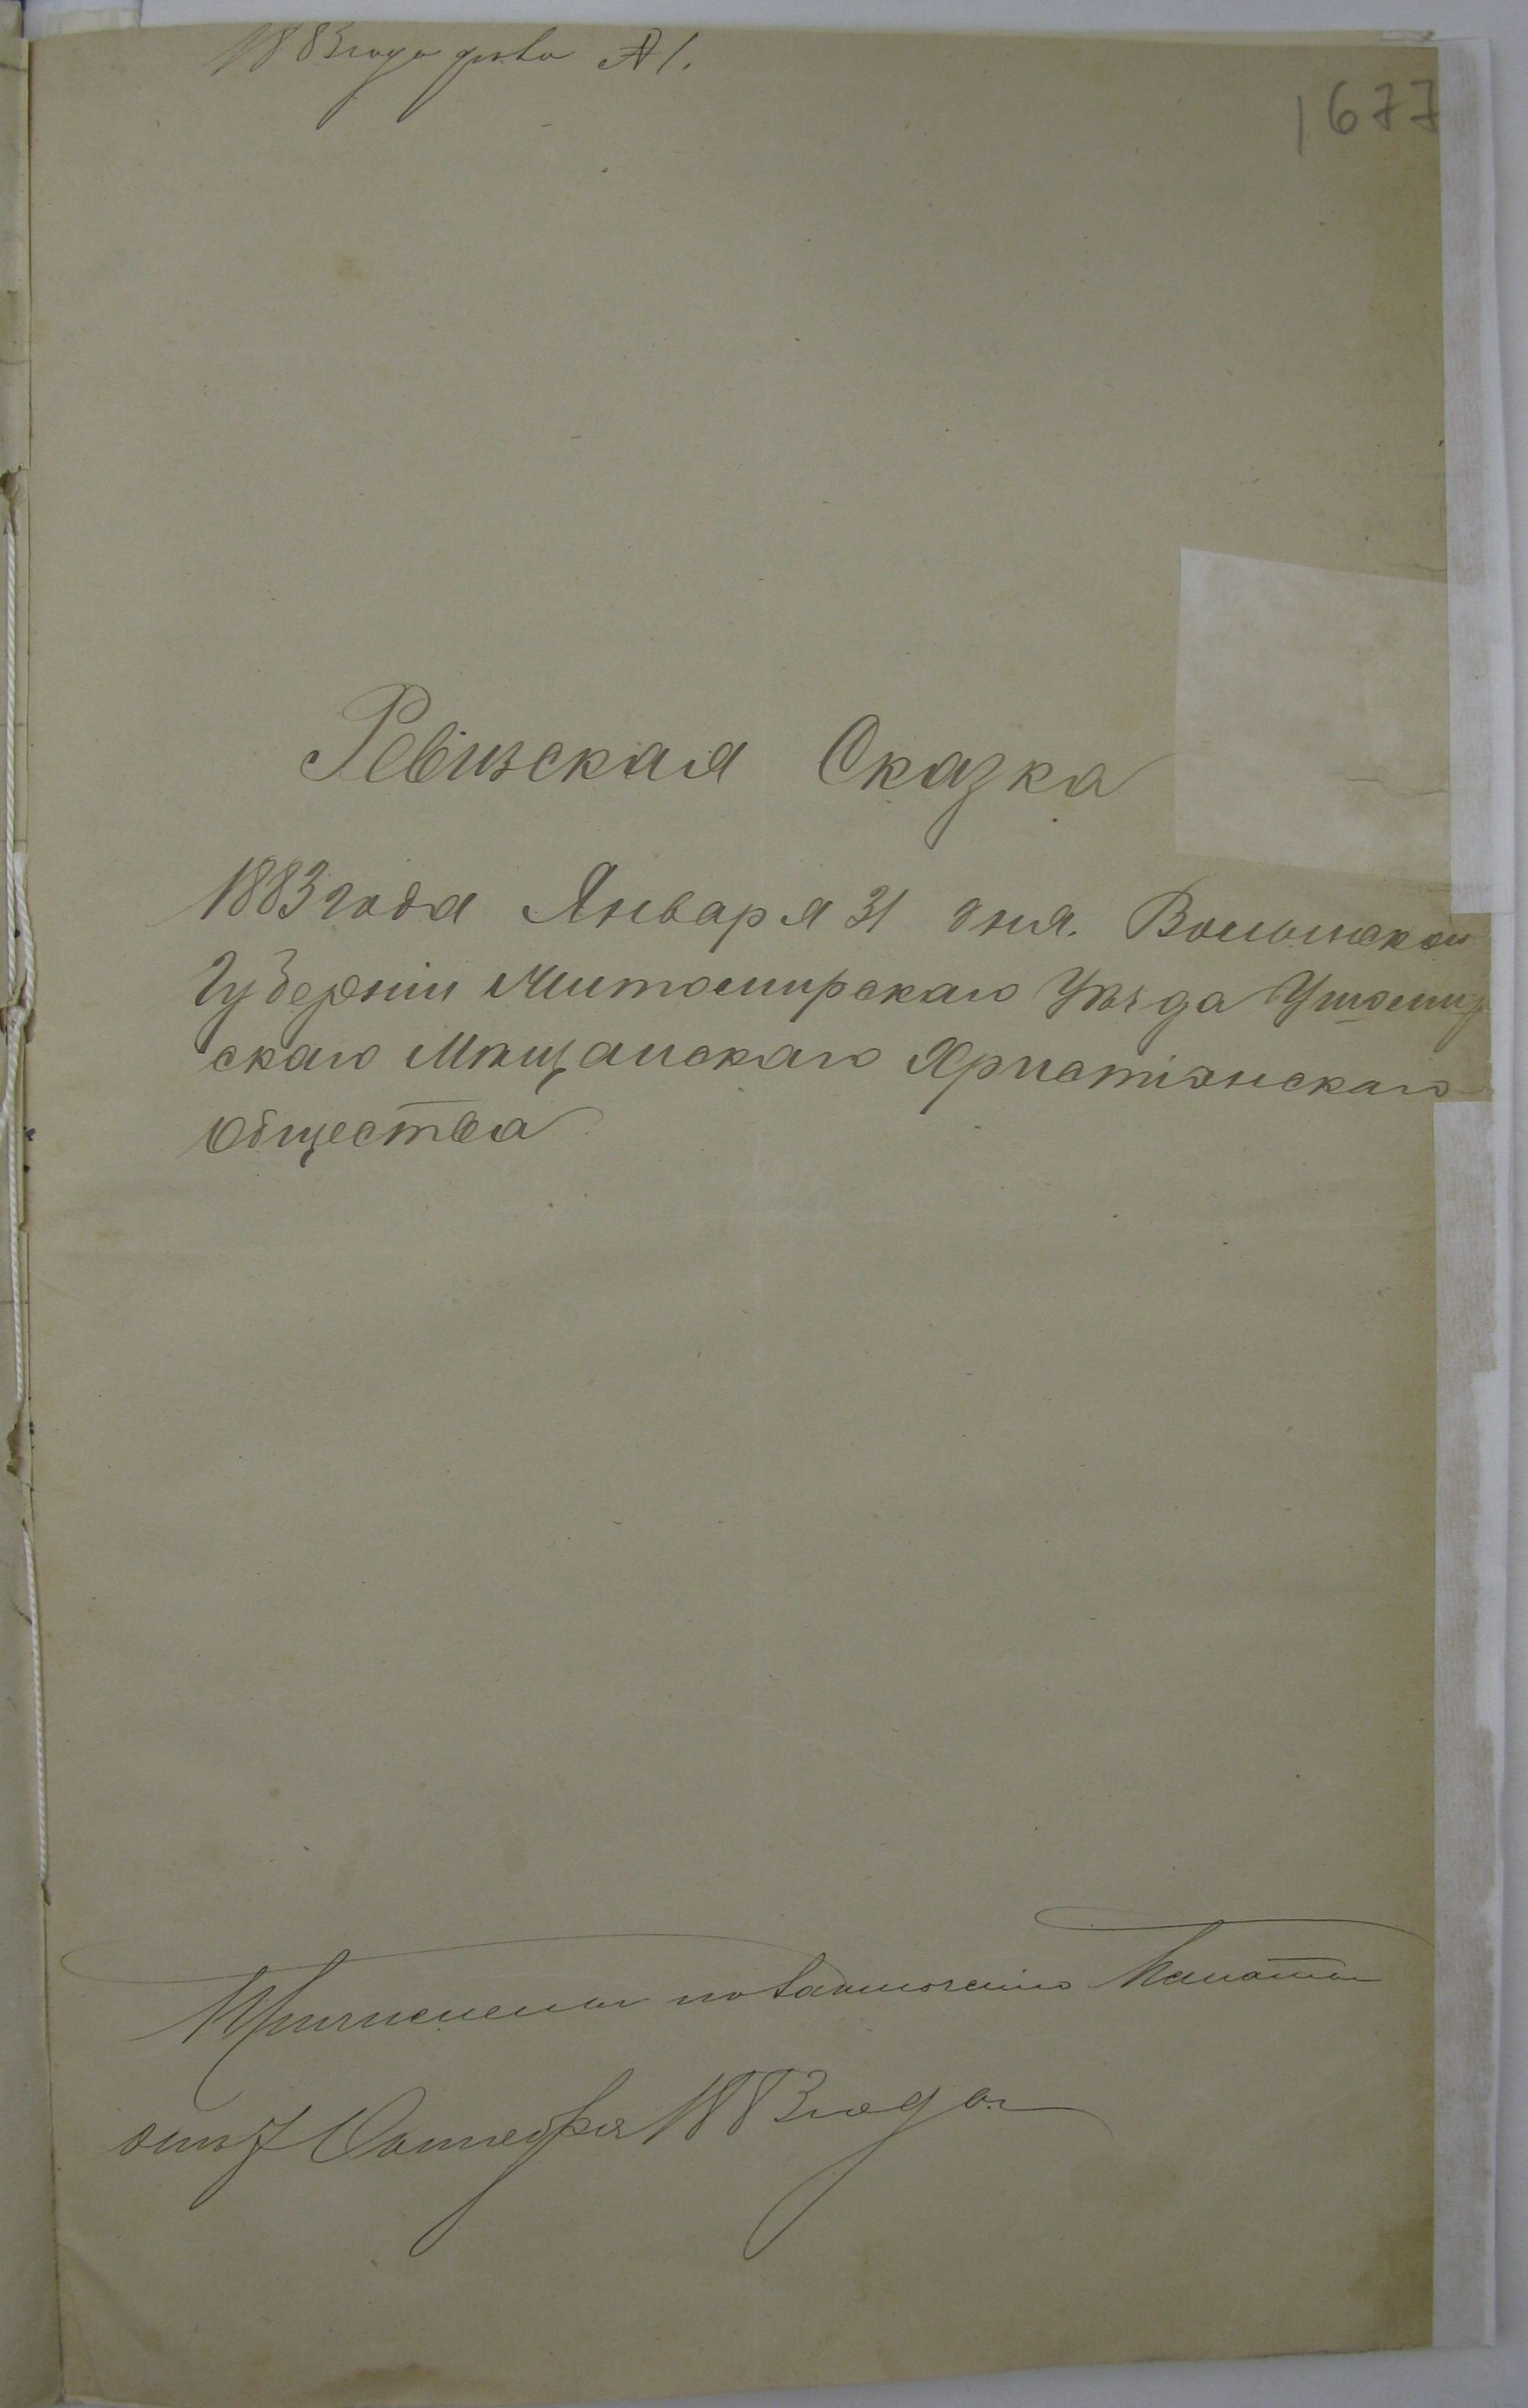 1883 года дѣло № 1.
1677
Ревизская Сказка
1883 года Января 31 дня. Волынской
Губернии Житомирскаго Уѣзда Ушомир
скаго Мѣщанскаго Христіянскаго
Общества
Причислены по заключенію Палаты
отъ 7 Октября 1883 года